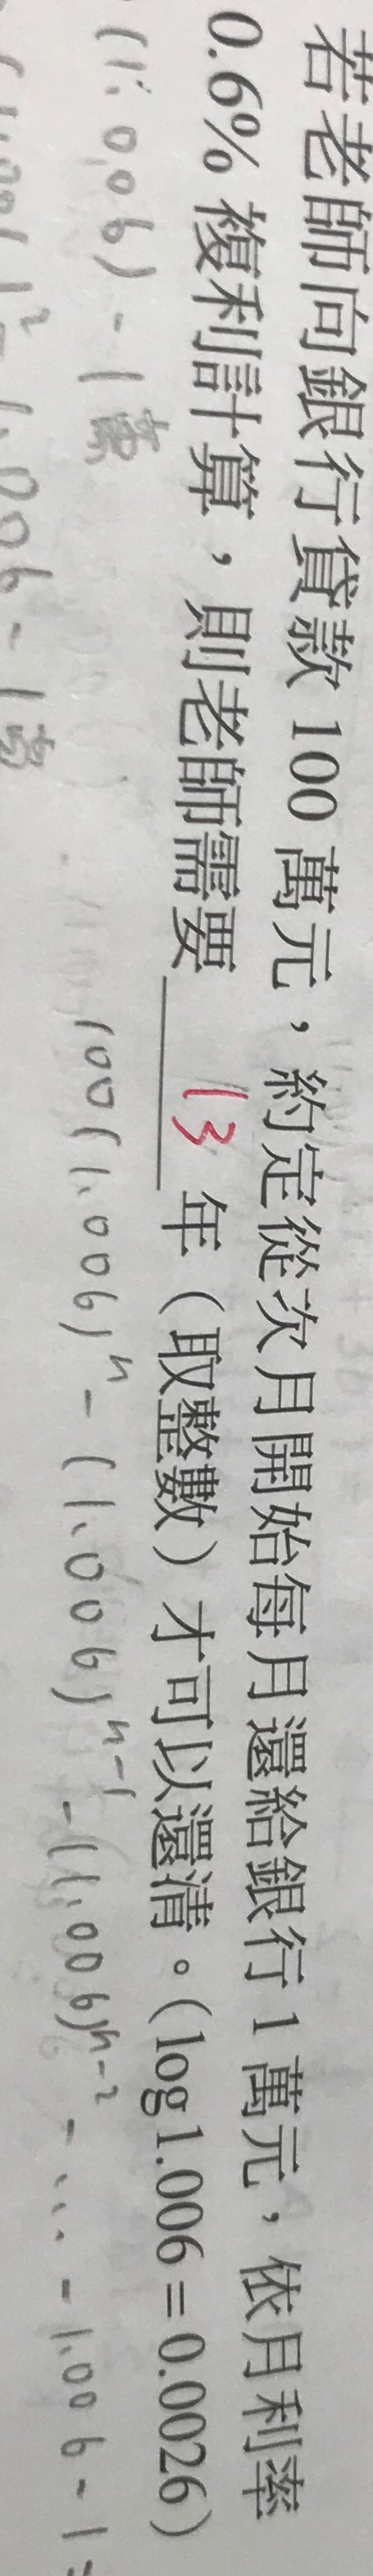 若老師向銀行貸款 100 萬元,約定從次月開始每月還給銀行 1 萬元,依月利率
0.6% 複利計算,則老師需要 13 年(取整數)才可以還清。(log1.006=0.0026)
-1萬 100(1.006)ⁿ-(1.006)ⁿ⁻¹-(1.006)ⁿ⁻²-...-1.006-1=
-1.006-1萬